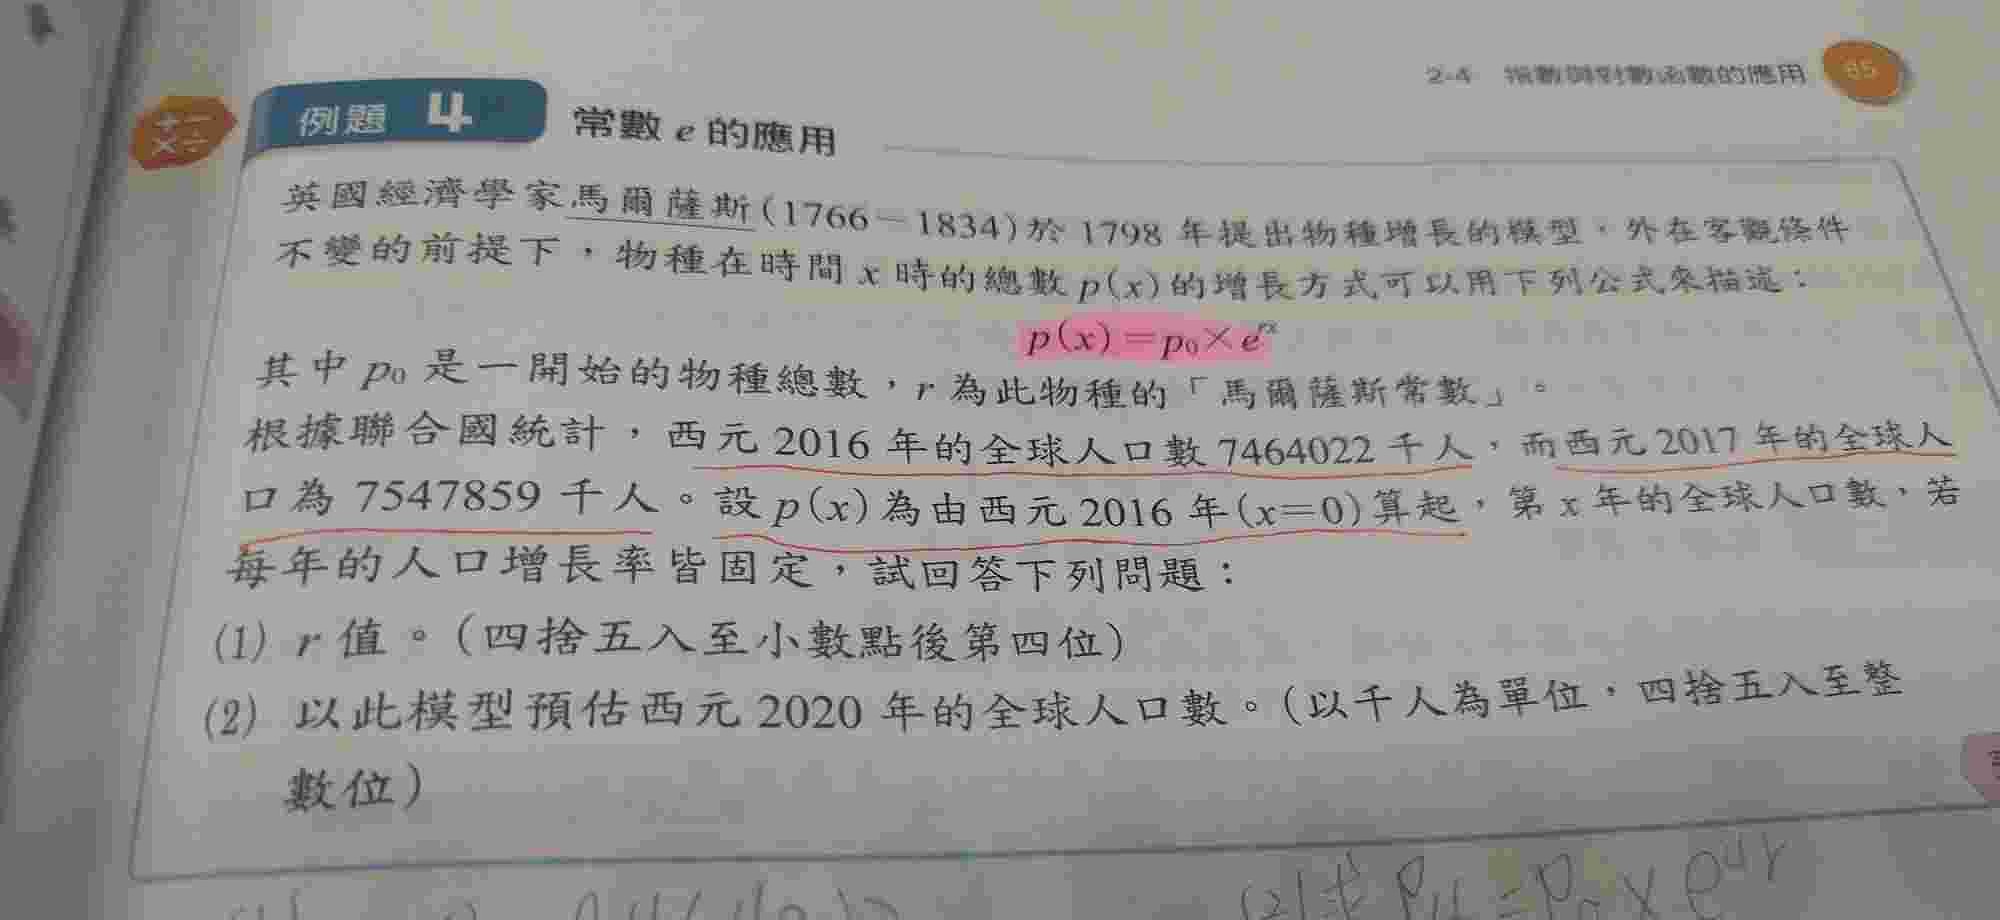 2-4 指數與對數函數的應用 65
例題 4 常數 e 的應用
英國經濟學家馬爾薩斯(1766-1834)於 1798 年提出物種增長的模型，外在客觀條件
不變的前提下，物種在時間 x 時的總數 p(x) 的增長方式可以用下列公式來描述：
p(x)=p₀×eʳˣ
其中 p₀ 是一開始的物種總數，r 為此物種的「馬爾薩斯常數」。
根據聯合國統計，西元 2016 年的全球人口數 7464022 千人，而西元 2017 年的全球人
口為 7547859 千人。設 p(x) 為由西元 2016 年(x=0)算起，第 x 年的全球人口數，若
每年的人口增長率皆固定，試回答下列問題：
(1) r 值。(四捨五入至小數點後第四位)
(2) 以此模型預估西元 2020 年的全球人口數。(以千人為單位，四捨五入至整
數位)